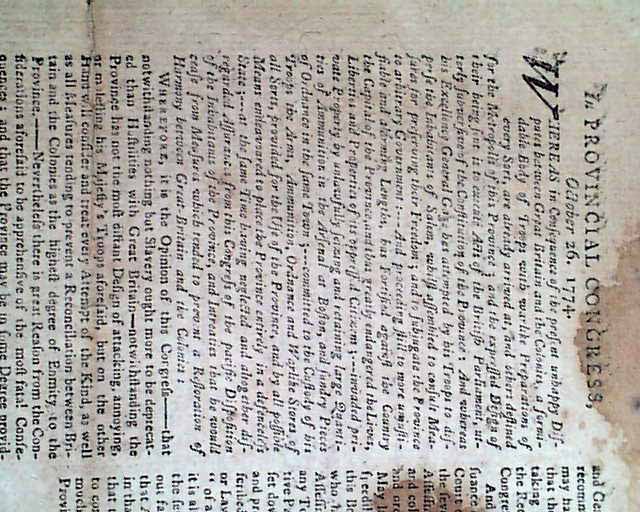 In PROVINCIAL CONGRESS,
October 26, 1774.
WHEREAS in Consequence of the present unhappy Dis-
putes between Great Britain and the Colonies, a formi-
dable Body of Troops with warlike Preparations of
every Sort are already arrived at, and others destined
for the Metropolis of this Province; and the expressed Design of
their being sent is to execute Acts of the British Parliament ut-
terly subversive of the Constitution of the Province: And whereas
his Excellency General Gage has attempted by his Troops to dis-
perse the Inhabitants of Salem, whilst assembled to consult Mea-
sures for preserving their Freedom; and to subjugate the Province
to arbitrary Government:—And proceeding still to more unjusti-
fiable and alarming Lengths, has fortified against the Country
the Capital of the Province, and thus greatly endangered the Lives,
Liberties and Properties of its oppressed Citizens;—invaded pri-
vate Property by unlawfully seizing and retaining large Quanti-
ties of Ammunition in the Arsenal at Boston, and sundry Pieces
of Ordnance in the same Town;—committed to the Custody of his
Troops the Arms, Ammunition, Ordnance and Warlike Stores of
all Sorts, provided for the Use of the Province, and by all possible
Means endeavoured to place the Province entirely in a defenceless
State;—at the same Time having neglected and altogether dis-
regarded Assurances from this Congress of the pacifick Disposition
of the Inhabitants of the Province, and Intreaties that he would
cease from Measures which tended to prevent a Restoration of
Harmony between Great-Britain and the Colonies:
WHEREFORE, it is the Opinion of this Congress—that
notwithstanding nothing but Slavery ought more to be deprecat-
ed than Hostilities with Great Britain—notwithstanding the
Province has not the most distant Design of attacking, annoying,
or molesting his Majesty's Troops aforesaid, but on the other
Hand will consider and treat every Attempt of the Kind, as well
as all Measures tending to prevent a Reconciliation between Bri-
tain and the Colonies as the highest degree of Enmity to the
Province.——Nevertheless there is great Reason from the Con-
siderations aforesaid to be apprehensive of the most fatal Conse-
quences; and that the Province may be in some Degree provid-
and Ge
recomm
may ha
that th
taking
the Rec
Congre
And
Court
and co
May
this B
who
any T
set do
and pr
scribed
or Law
" of a
it is al
the fe
out fa
that
in tha
that
to co
much
Provi